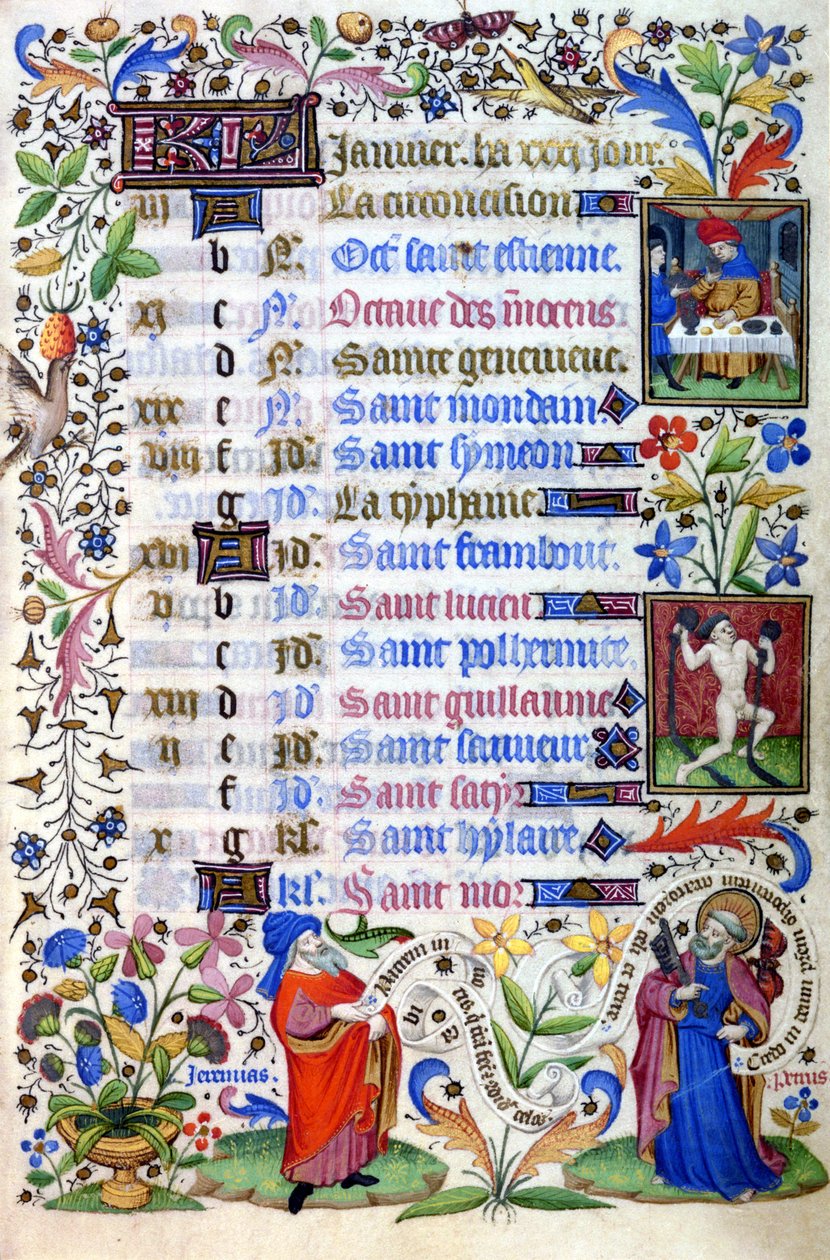 KL Januier. ha xxxj Jour.
iij A La circoncision
b N. Oct̄ saint estienne.
xj c N. Octaue des īnocens.
d N. Sainte geneuieue.
xix e N. Saint mondain.
viij f Jd. Saint symeon
g Jd. La typhanie.
xvi A Jd. Saint frambout.
v b Jd. Saint lucien
c Jd. Saint polhermite.
xiij d Jd Saint guillaume
ij e Jd. Saint sauueur
f Jd. Saint satyr
x g kl. Saint hylaire
A kl. Saint mor
Patrem in uo
cabi
tis. q̄ celos.
Jeremias.
Credo in deum patrem omnipotentem creatorem celi et terre
Petrus